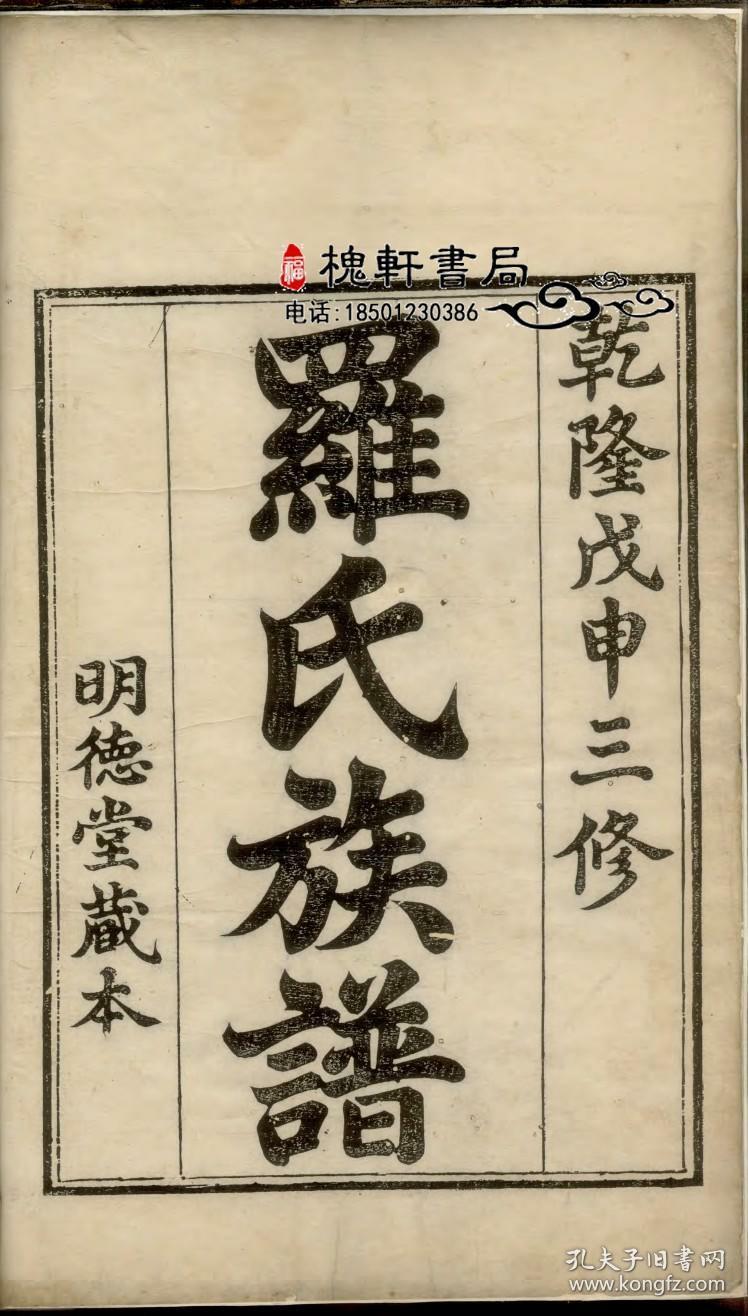 福
槐軒書局
电话:18501230386
乾隆戊申三修
羅氏族譜
明德堂藏本
孔夫子旧书网
www.kongfz.com